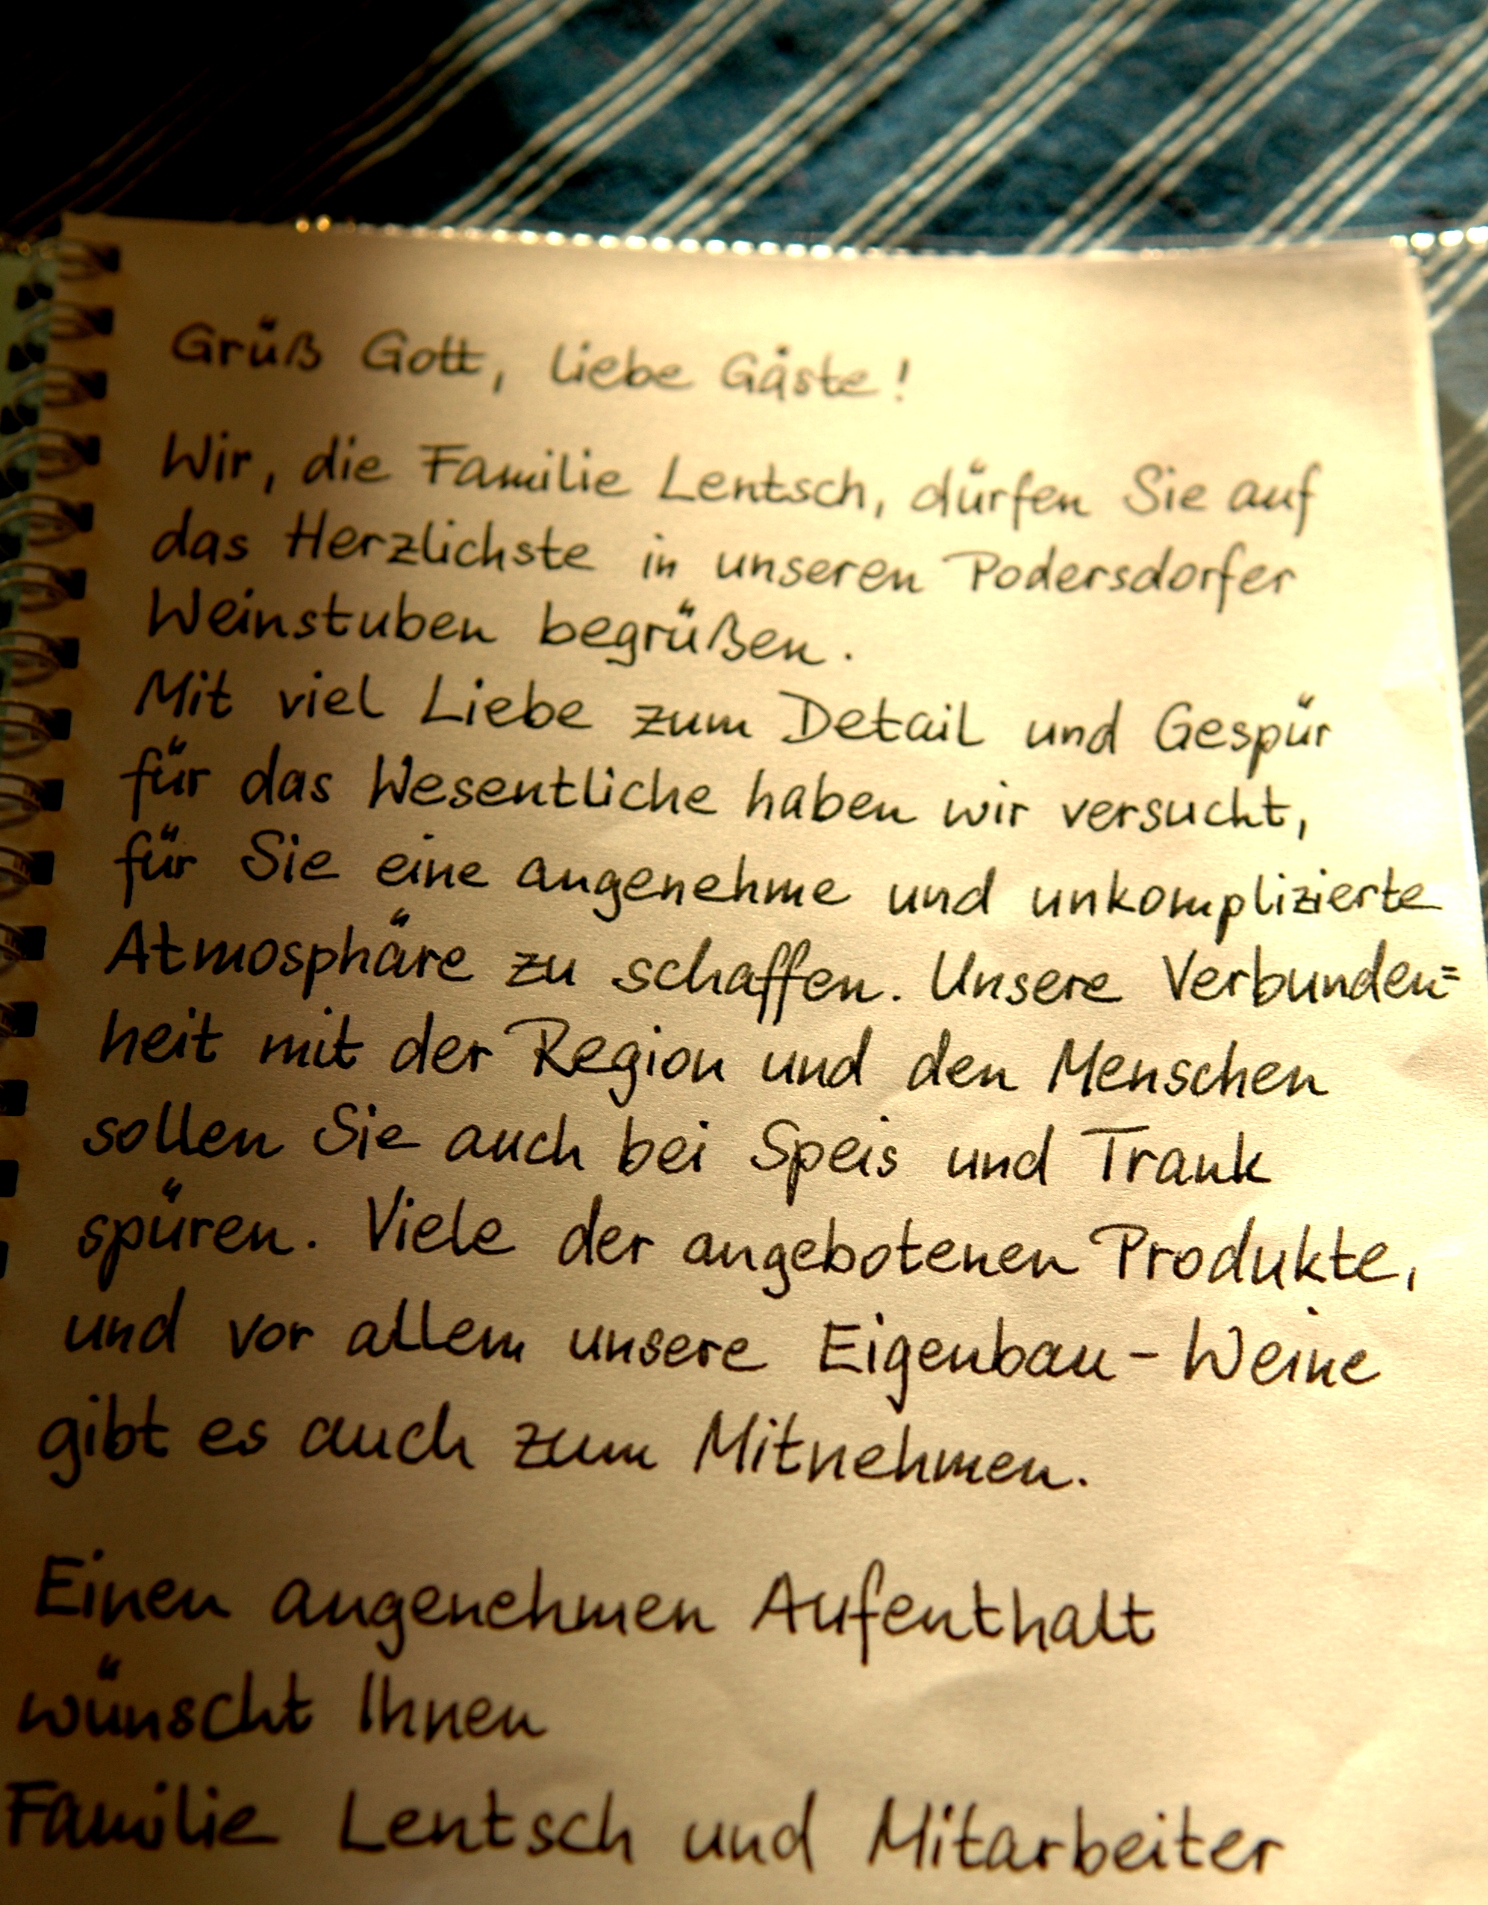 Grüß Gott, liebe Gäste!
Wir, die Familie Lentsch, dürfen Sie auf
das Herzlichste in unseren Podersdorfer
Weinstuben begrüßen.
Mit viel Liebe zum Detail und Gespür
für das Wesentliche haben wir versucht,
für Sie eine angenehme und unkomplizierte
Atmosphäre zu schaffen. Unsere Verbunden=
heit mit der Region und den Menschen
sollen Sie auch bei Speis und Trank
spüren. Viele der angebotenen Produkte,
und vor allem unsere Eigenbau-Weine
gibt es auch zum Mitnehmen.
Einen angenehmen Aufenthalt
wünscht Ihnen
Familie Lentsch und Mitarbeiter